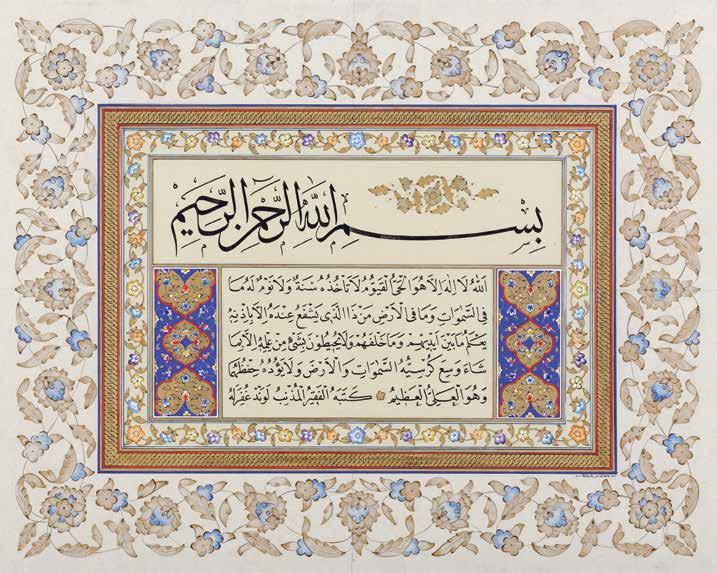 بِسْمِ اللّٰهِ الرَّحْمٰنِ الرَّحِيْمِ
اَللّٰهُ لَا اِلٰهَ اِلَّا هُوَ الْحَيُّ الْقَيُّوْمُ لَا تَاْخُذُهُ سِنَةٌ وَلَا نَوْمٌ لَهُ مَا
فِى السَّمٰوَاتِ وَمَا فِى الْاَرْضِ مَنْ ذَا الَّذِى يَشْفَعُ عِنْدَهُ اِلَّا بِاِذْنِهِ
يَعْلَمُ مَا بَيْنَ اَيْدِيْهِمْ وَمَا خَلْفَهُمْ وَلَا يُحِيْطُوْنَ بِشَىْءٍ مِنْ عِلْمِهِ اِلَّا بِمَا
شَاءَ وَسِعَ كُرْسِيُّهُ السَّمٰوَاتِ وَالْاَرْضَ وَلَا يَؤُدُهُ حِفْظُهُمَا
وَهُوَ الْعَلِىُّ الْعَظِيْمُ كَتَبَهُ الْفَقِيْرُ الْمُذْنِبُ لَوَنْد غُفِرَلَهُ